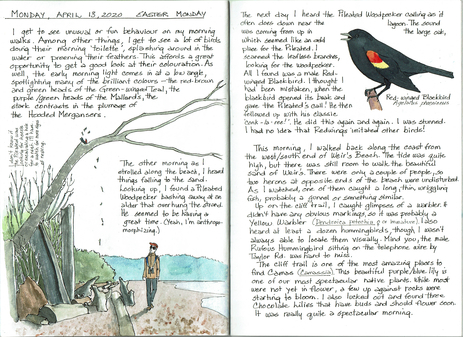 MONDAY, APRIL 13, 2020 EASTER MONDAY
I get to see unusual or fun behaviour on my morning
walks. Among other things, I get to see a lot of birds
doing their morning 'toilette', splashing around in the
water or preening their feathers. This affords a great
opportunity to get a good look at their colouration. As
well, the early morning light comes in at a low angle,
spotlighting many of the brilliant colours - the red-brown
and green heads of the Green-winged Teal, the
purple/green heads of the Mallards, the
stark contrasts in the plumage of
the Hooded Mergansers.
The other morning as I
strolled along the beach, I heard
things falling to the sand.
Looking up, I found a Pileated
Woodpecker bashing away at an
alder that overhung the strand.
He seemed to be having a
great time (Yeah, I'm anthropo-
morphizing.)
The next day I heard the Pileated Woodpecker calling as it
often does down near the lagoon. The sound
was coming from up in the large oak,
which seemed like an odd
place for the Pileated. I
scanned the leafless branches,
looking for the woodpecker.
All I found was a male Red-
winged Blackbird. I thought I
had been mistaken, when the
blackbird opened its beak and
gave the Pileated's call! He then
followed up with his classic
"conk-la-ree!". He did this again and again. I was stunned.
I had no idea that Redwings imitated other birds!
Red-winged Blackbird
Agelaius phoeniceus
This morning, I walked back along the coast from
the west/south end of Weir's Beach. The tide was quite
high, but there was still room to walk the beautiful
sand of Weir's. There were only a couple of people, so
two herons at opposite ends of the beach were undisturbed.
As I watched, one of them caught a long, thin, wriggling
fish, probably a gunnel or something similar.
Up on the cliff trail, I caught glimpses of a warbler. It
didn't have any obvious markings, so it was probably a
Yellow Warbler (Dendroica petechia). I also
heard at least a dozen hummingbirds, though I wasn't
always able to locate them visually. Mind you, the male
Rufous Hummingbird sitting on the telephone wire by
Taylor Rd. was hard to miss!
The cliff trail is one of the most amazing places to
find Camas (Camassia). This beautiful purple/blue lily is
one of our most spectacular native plants. While most
were not yet in flower, a few up against rocks were
starting to bloom. I also lucked out and found three
Chocolate lilies that have buds and should flower soon.
It was really quite a spectacular morning.